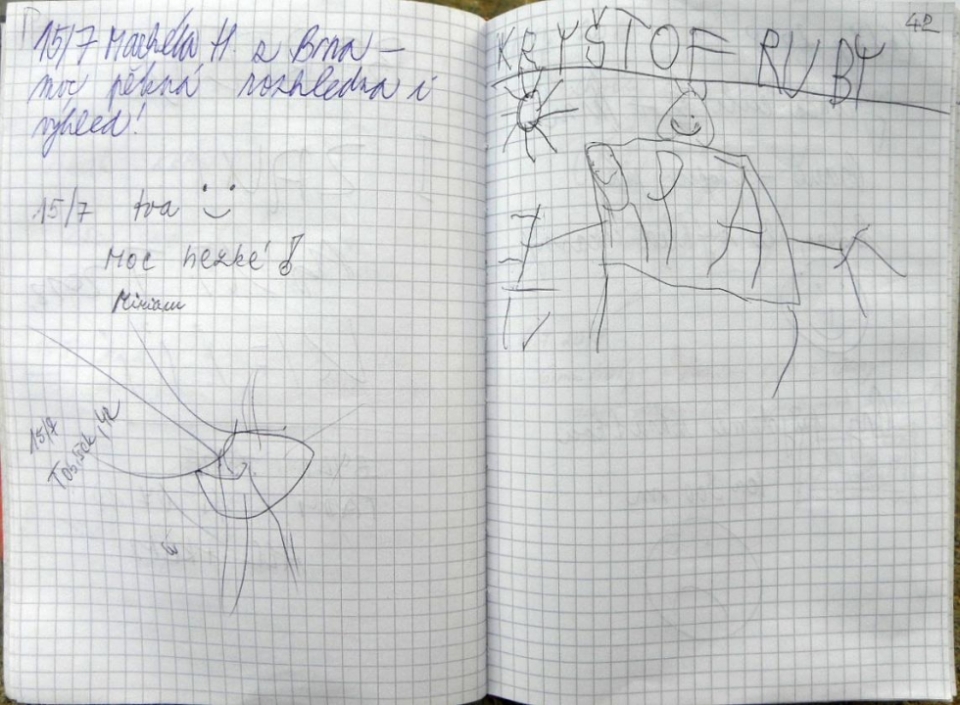 15/7 Markéta H. z Brna –
moc pěkná rozhledna i
výhled!
15/7 Iva
Moc hezké!
Miriam
15/7
Tomášek, 4r
42
KRYŠTOF RUBY